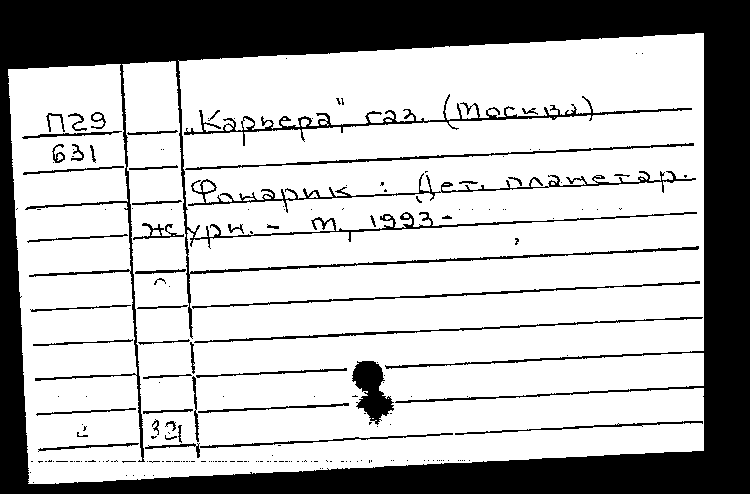 П29 „Карьера", газ. (Москва)
631
Фонарик : Дет. планетар.
журн. - М., 1993-